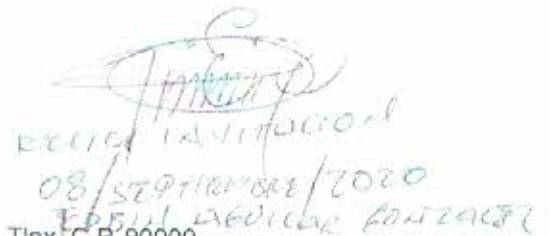 RECIBI INVITACION
08/SEPTIEMBRE/2020
EDBIN AGUILAR GONZALEZ
Tlax. C.P. 90000